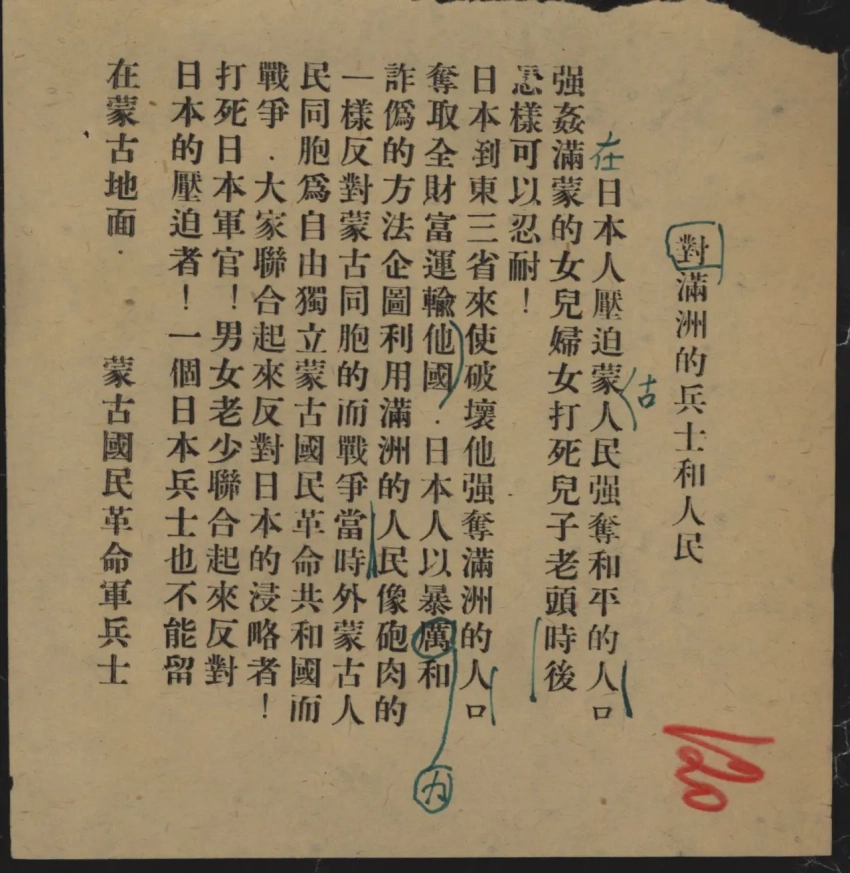 對滿洲的兵士和人民
在日本人壓迫蒙古人民强奪和平的人口
强姦滿蒙的女兒婦女打死兒子老頭時後
怎樣可以忍耐！
日本到東三省來使破壞他强奪滿洲的人口
奪取全財富運輸他國．日本人以暴厲和
力
詐僞的方法企圖利用滿洲的人民像砲肉的
一樣反對蒙古同胞的而戰爭當時外蒙古人
民同胞爲自由獨立蒙古國民革命共和國而
戰爭．大家聯合起來反對日本的浸略者！
打死日本軍官！男女老少聯合起來反對
日本的壓迫者！一個日本兵士也不能留
在蒙古地面．　蒙古國民革命軍兵士
120